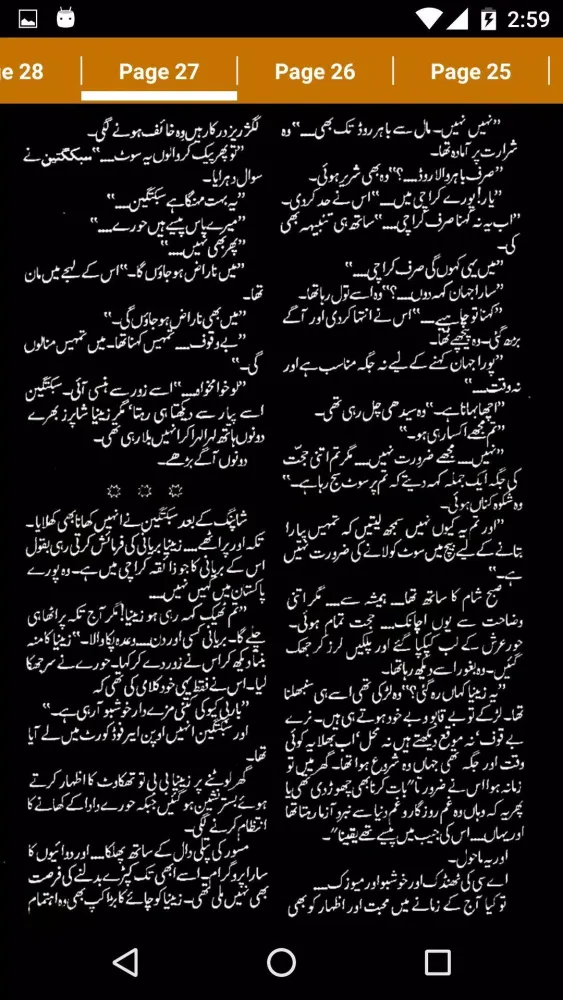 2:59
Page 25
Page 26
Page 27
ge 28
”نہیں نہیں۔ مال سے باہر روڈ تک بھی۔۔۔۔“ وہ
شرارت پر آمادہ تھا۔
”صرف باہر والا روڈ۔۔۔۔؟“ وہ بھی شریر ہوئی۔
”یار! پورے کراچی میں۔۔۔۔“ اس نے حد کر دی۔
”اب یہ نہ کہنا صرف کراچی۔۔۔۔“ ساتھ ہی تنبیہہ بھی
کی۔
”میں یہی کہوں گی صرف کراچی۔۔۔۔“
”سارا جہان کہہ دوں۔۔۔۔؟“ وہ اسے تول رہا تھا۔
”کہنا تو چاہیے۔۔۔۔“ اس نے انتہا کر دی اور آگے
بڑھ گئی۔ وہ پیچھے تھا۔
”پورا جہان کہنے کے لیے نہ جگہ مناسب ہے اور
نہ وقت۔۔۔۔“
”اچھا بہانا ہے۔“ وہ سیدھی چل رہی تھی۔
”تم مجھے اکسا رہی ہو۔“
”نہیں۔۔۔۔ مجھے ضرورت نہیں۔۔۔۔ مگر تم اتنی حجت
کی جگہ ایک جملہ کہہ دیتے کہ تم پر سوٹ سج رہا ہے۔“
وہ شکوہ کناں ہوئی۔
”اور تم یہ کیوں نہیں سمجھ لیتیں کہ تمہیں پیارا
بتانے کے لیے بیچ میں سوٹ کو لانے کی ضرورت نہیں
ہے۔“
صبح شام کا ساتھ تھا۔۔۔۔ ہمیشہ سے۔۔۔۔ مگر اتنی
وضاحت سے یوں اچانک۔۔۔۔ حجت تمام ہوئی۔
حور عرش کے لب کپکپا گئے اور پلکیں لرز کر جھک
گئیں۔ وہ بغور اسے دیکھ رہا تھا۔
”یہ زینیا کہاں رہ گئی؟“ وہ لڑکی تھی اسے ہی سنبھلنا
تھا۔ لڑکے تو بے قابو و بے خود ہوتے ہی ہیں۔ نرے
بے قوف‘ نہ موقع دیکھتے ہیں نہ محل‘ اب بھلا یہ کوئی
وقت اور جگہ تھی جہاں وہ شروع ہوا تھا۔ گھر میں تو
زمانہ ہوا اس نے ضرورتا“ بات کرنا بھی چھوڑ دی تھی یا
پھر یہ کہ وہاں وہ غم روزگار و غم دنیا سے نبرد آزما رہتا تھا
اور یہاں۔۔۔۔ اس کی جیب میں پیسے تھے یقینا“۔
اور یہ ماحول۔
اے سی کی ٹھنڈک اور خوشبو اور میوزک۔۔۔۔
تو کیا آج کے زمانے میں محبت اور اظہار کو بھی
لگژریز درکار ہیں وہ خائف ہونے لگی۔
”تو پھر پیک کروالوں یہ سوٹ۔۔۔۔“ سبکتگین نے
سوال دہرایا۔
”یہ بہت مہنگا ہے سبکتگین۔۔۔۔“
”میرے پاس پیسے ہیں حورے۔۔۔۔“
”پھر بھی نہیں۔۔۔۔“
”میں ناراض ہو جاؤں گا۔“ اس کے لہجے میں مان
تھا۔
”میں بھی ناراض ہو جاؤں گی۔“
”بے وقوف۔۔۔۔ تمہیں کہنا تھا۔ میں تمہیں منالوں
گی۔“
”لو خوامخواہ۔۔۔۔“ اسے زور سے ہنسی آئی۔ سبکتگین
اسے پیار سے دیکھتا ہی رہتا‘ مگر زینیا شاپرز بھرے
دونوں ہاتھ لہرا لہرا کر انہیں بلا رہی تھی۔
دونوں آگے بڑھے۔
شاپنگ کے بعد سبکتگین نے انہیں کھانا بھی کھلایا۔
تکہ اور پراٹھے۔۔۔۔ زینیا بریانی کی فرمائش کرتی رہی بقول
اس کے بریانی کا جو ذائقہ کراچی میں ہے۔ وہ پورے
پاکستان میں کہیں نہیں۔۔۔۔
”تم ٹھیک کہہ رہی ہو زینیا! مگر آج تکہ پراٹھا ہی
چلے گا۔ بریانی کسی اور دن۔۔۔۔ وعدہ پکا والا۔“ زینیا کا منہ
بنتا دیکھ کر اس نے زور دے کر کہا۔ حورے نے سر جھکا
لیا۔ اس نے فقط یہی خود کلامی کی تھی کہ
”بار بی کیو کی کتنی مزے دار خوشبو آ رہی ہے۔“
اور سبکتگین انہیں اوپن ایئر فوڈ کورٹ میں لے آیا
تھا۔
گھر لوٹنے پر زینیا بی بی تو تھکاوٹ کا اظہار کرتے
ہوئے بستر نشین ہو گئیں جبکہ حورے دادا کے کھانے کا
انتظام کرنے لگی۔
مسور کی پتلی دال کے ساتھ پھلکا۔۔۔۔ اور دوائیوں کا
سارا پروگرام۔ اسے ابھی تک کپڑے بدلنے کی فرصت
بھی نہیں ملی تھی۔ زینیا کو چائے کا بڑا کپ بھی وہ اہتمام